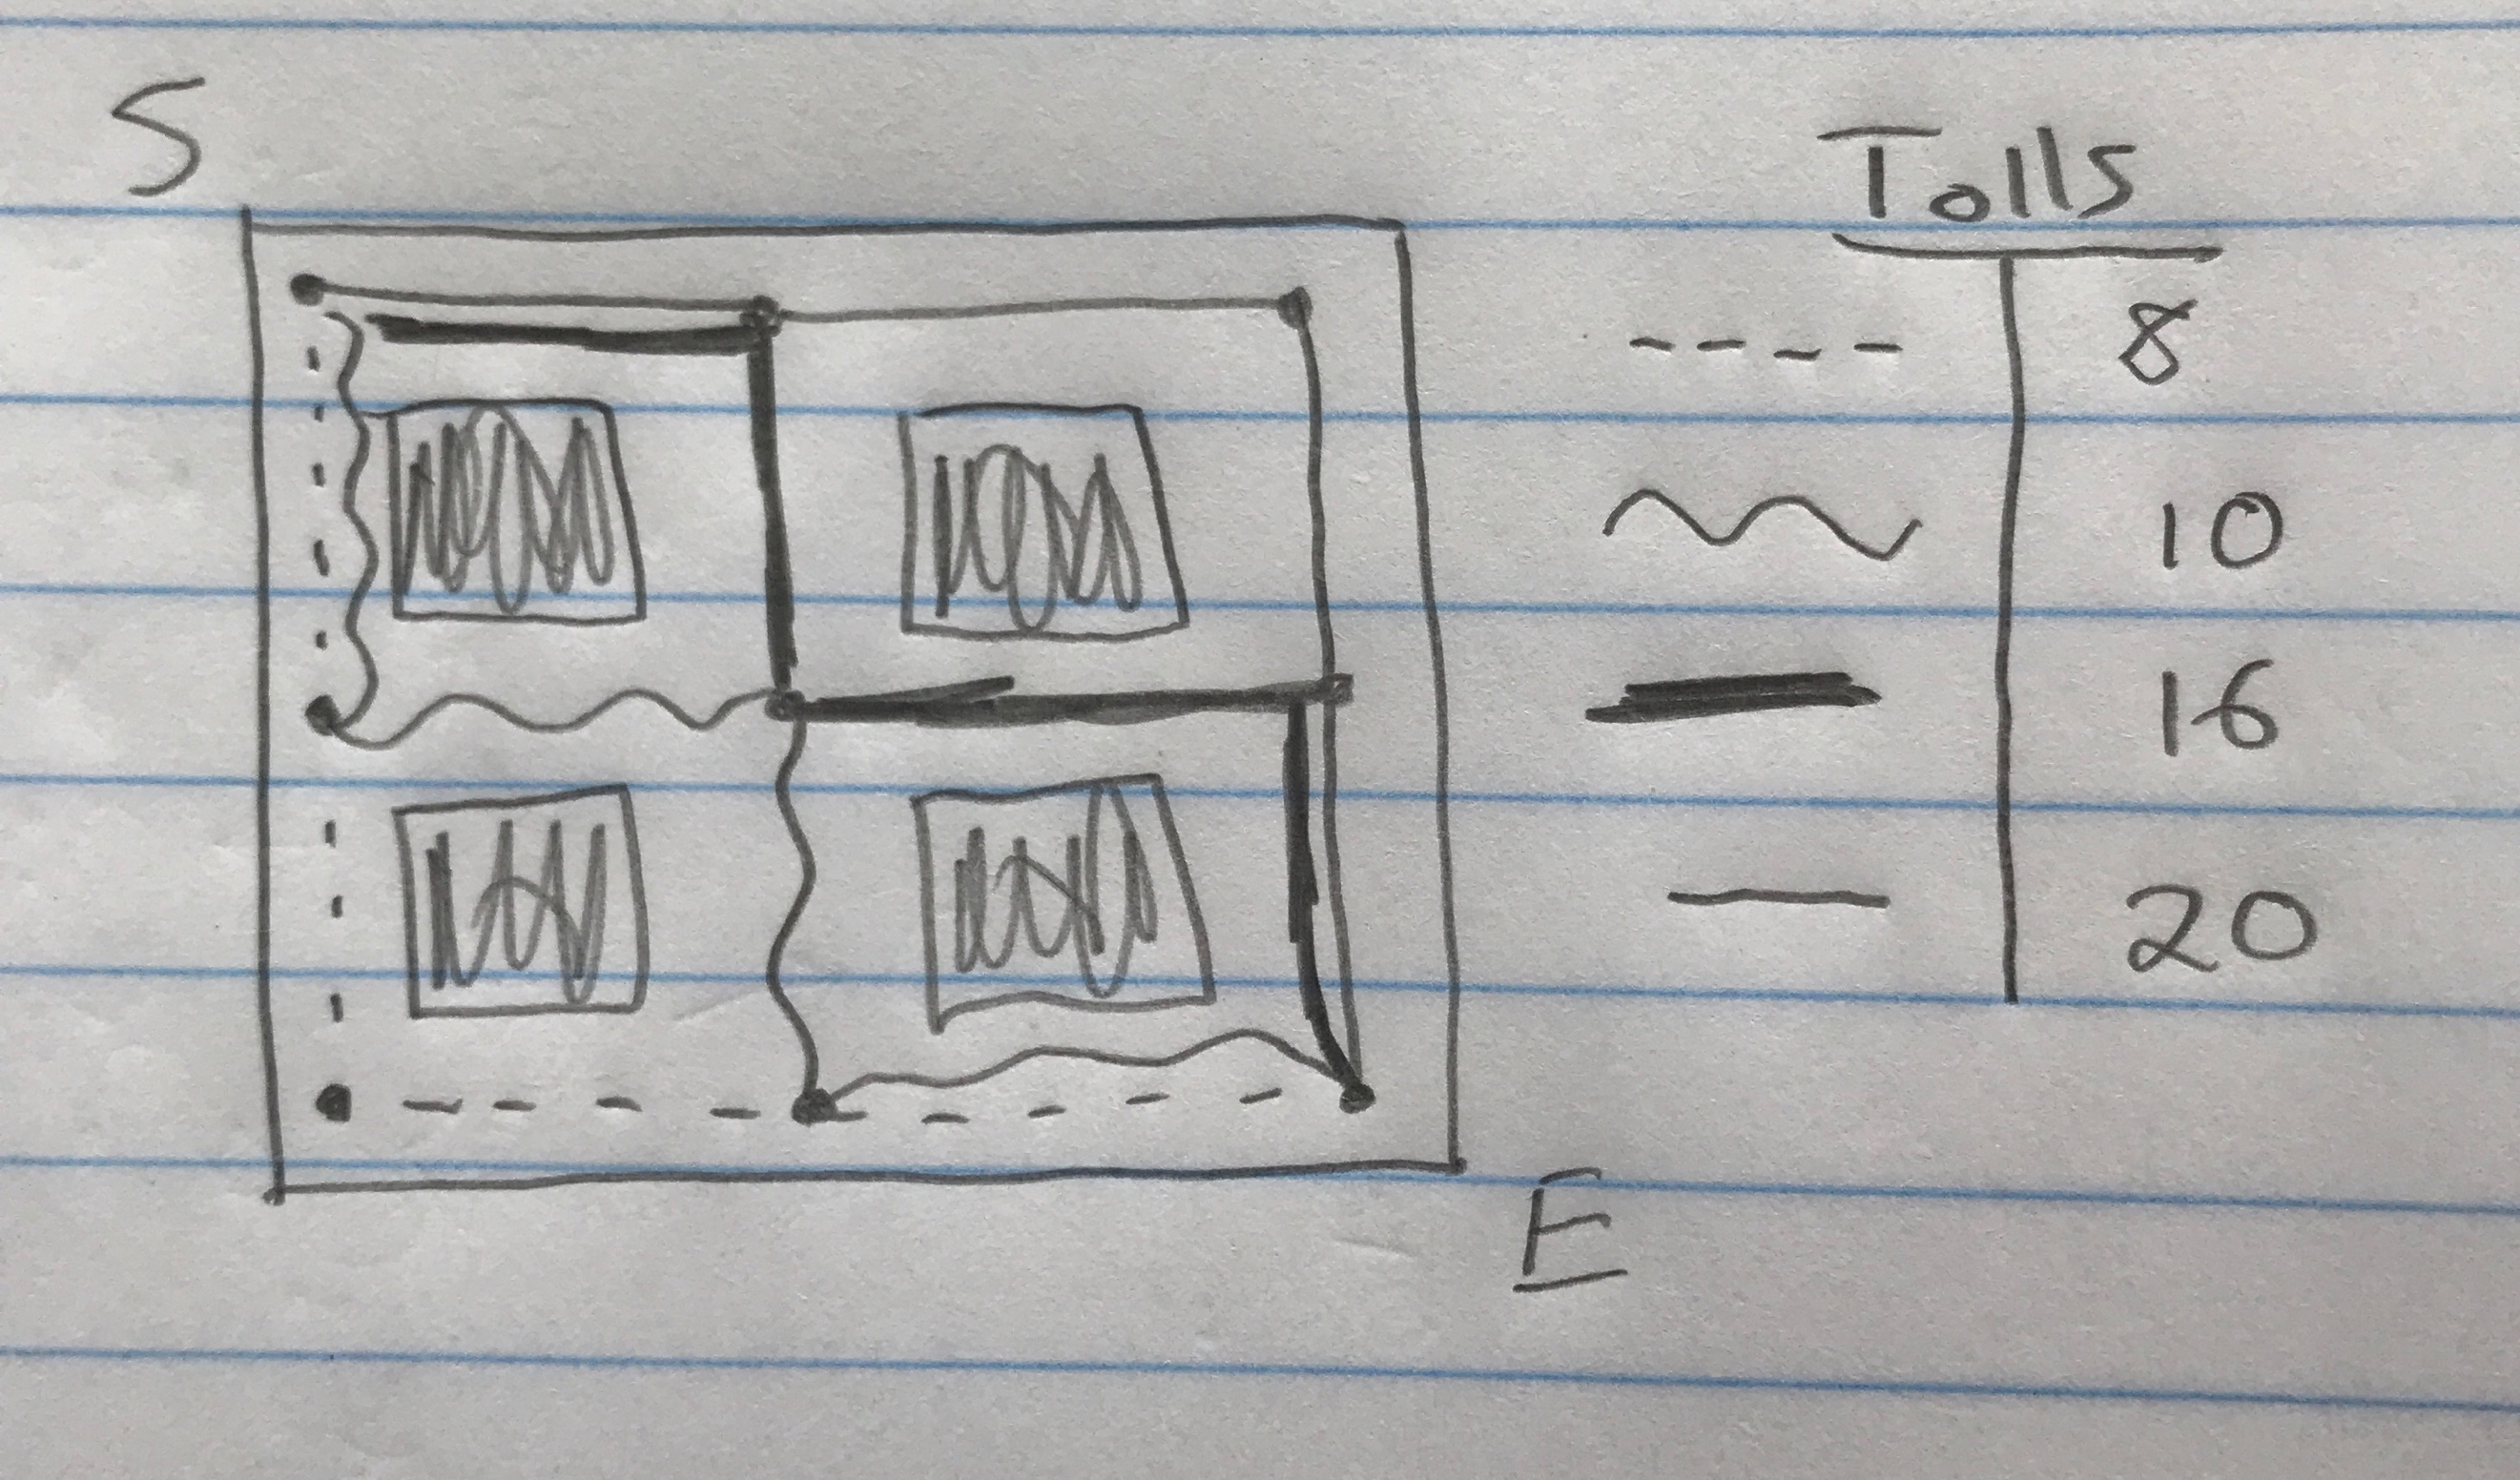 S
Tolls
8
10
16
20
E